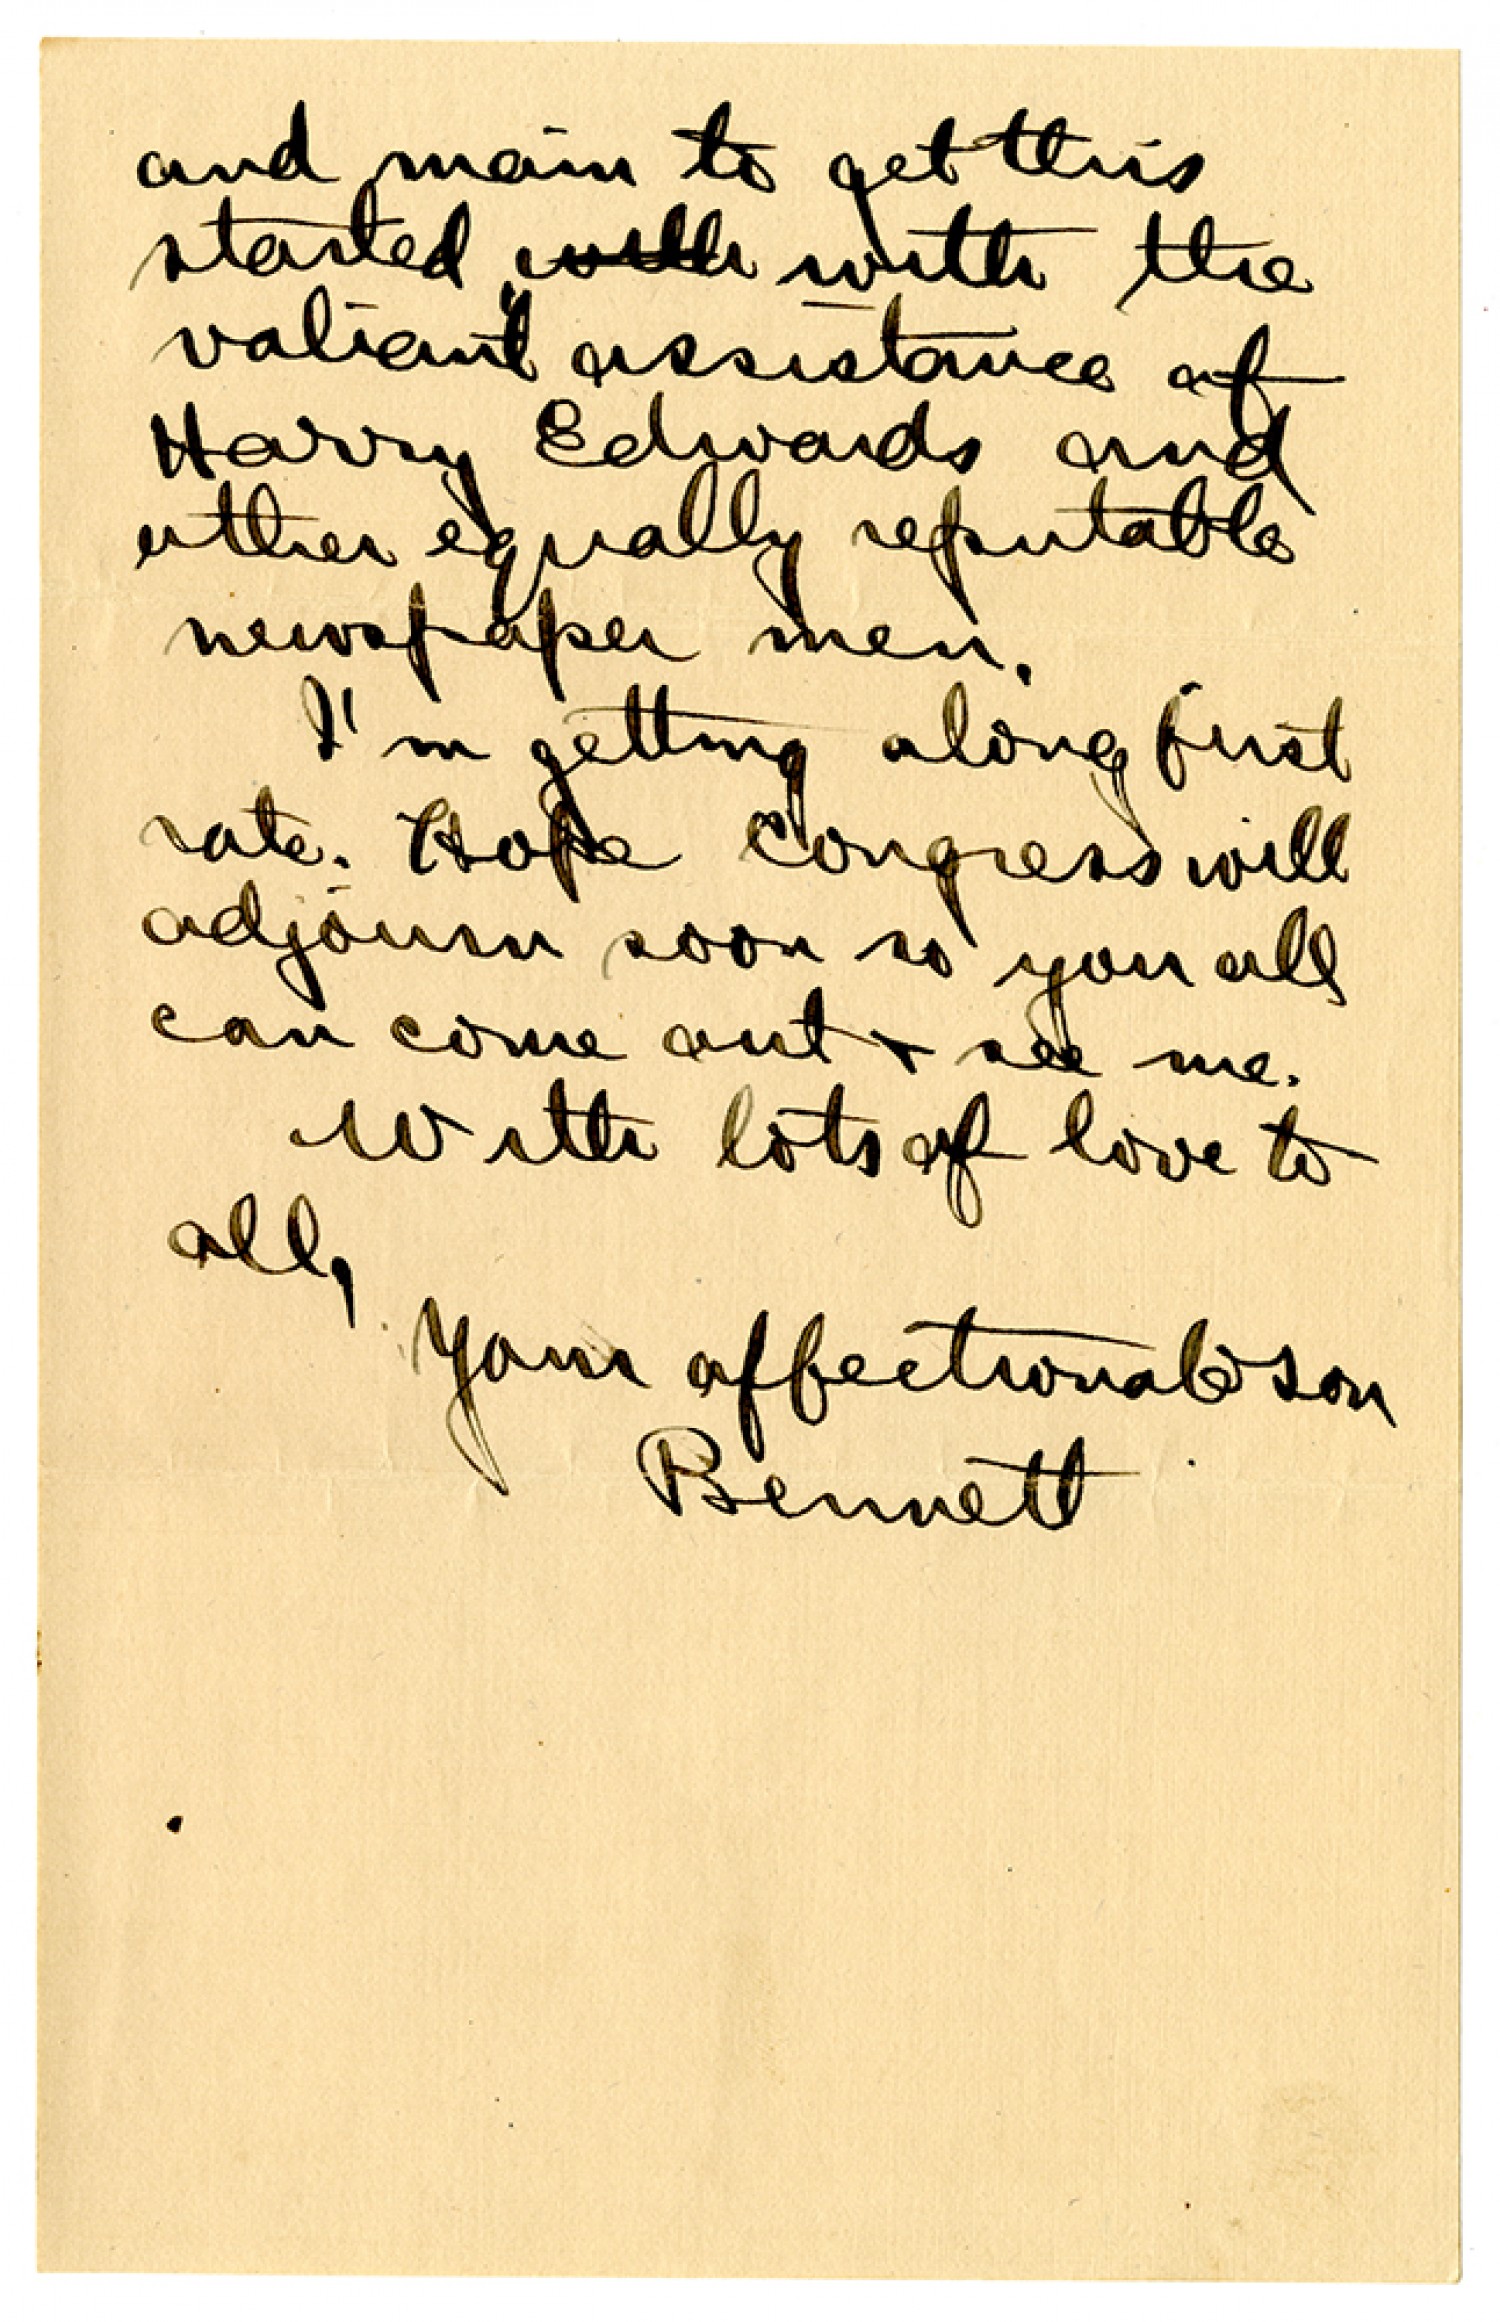 and main to get this
started with with the
valiant assistance of
Harry Edwards and
other equally reputable
newspaper men.
I'm getting along first
rate. Hope Congress will
adjourn soon so you all
can come out + see me.
With lots of love to
all,
Your affectionate son
Bennett